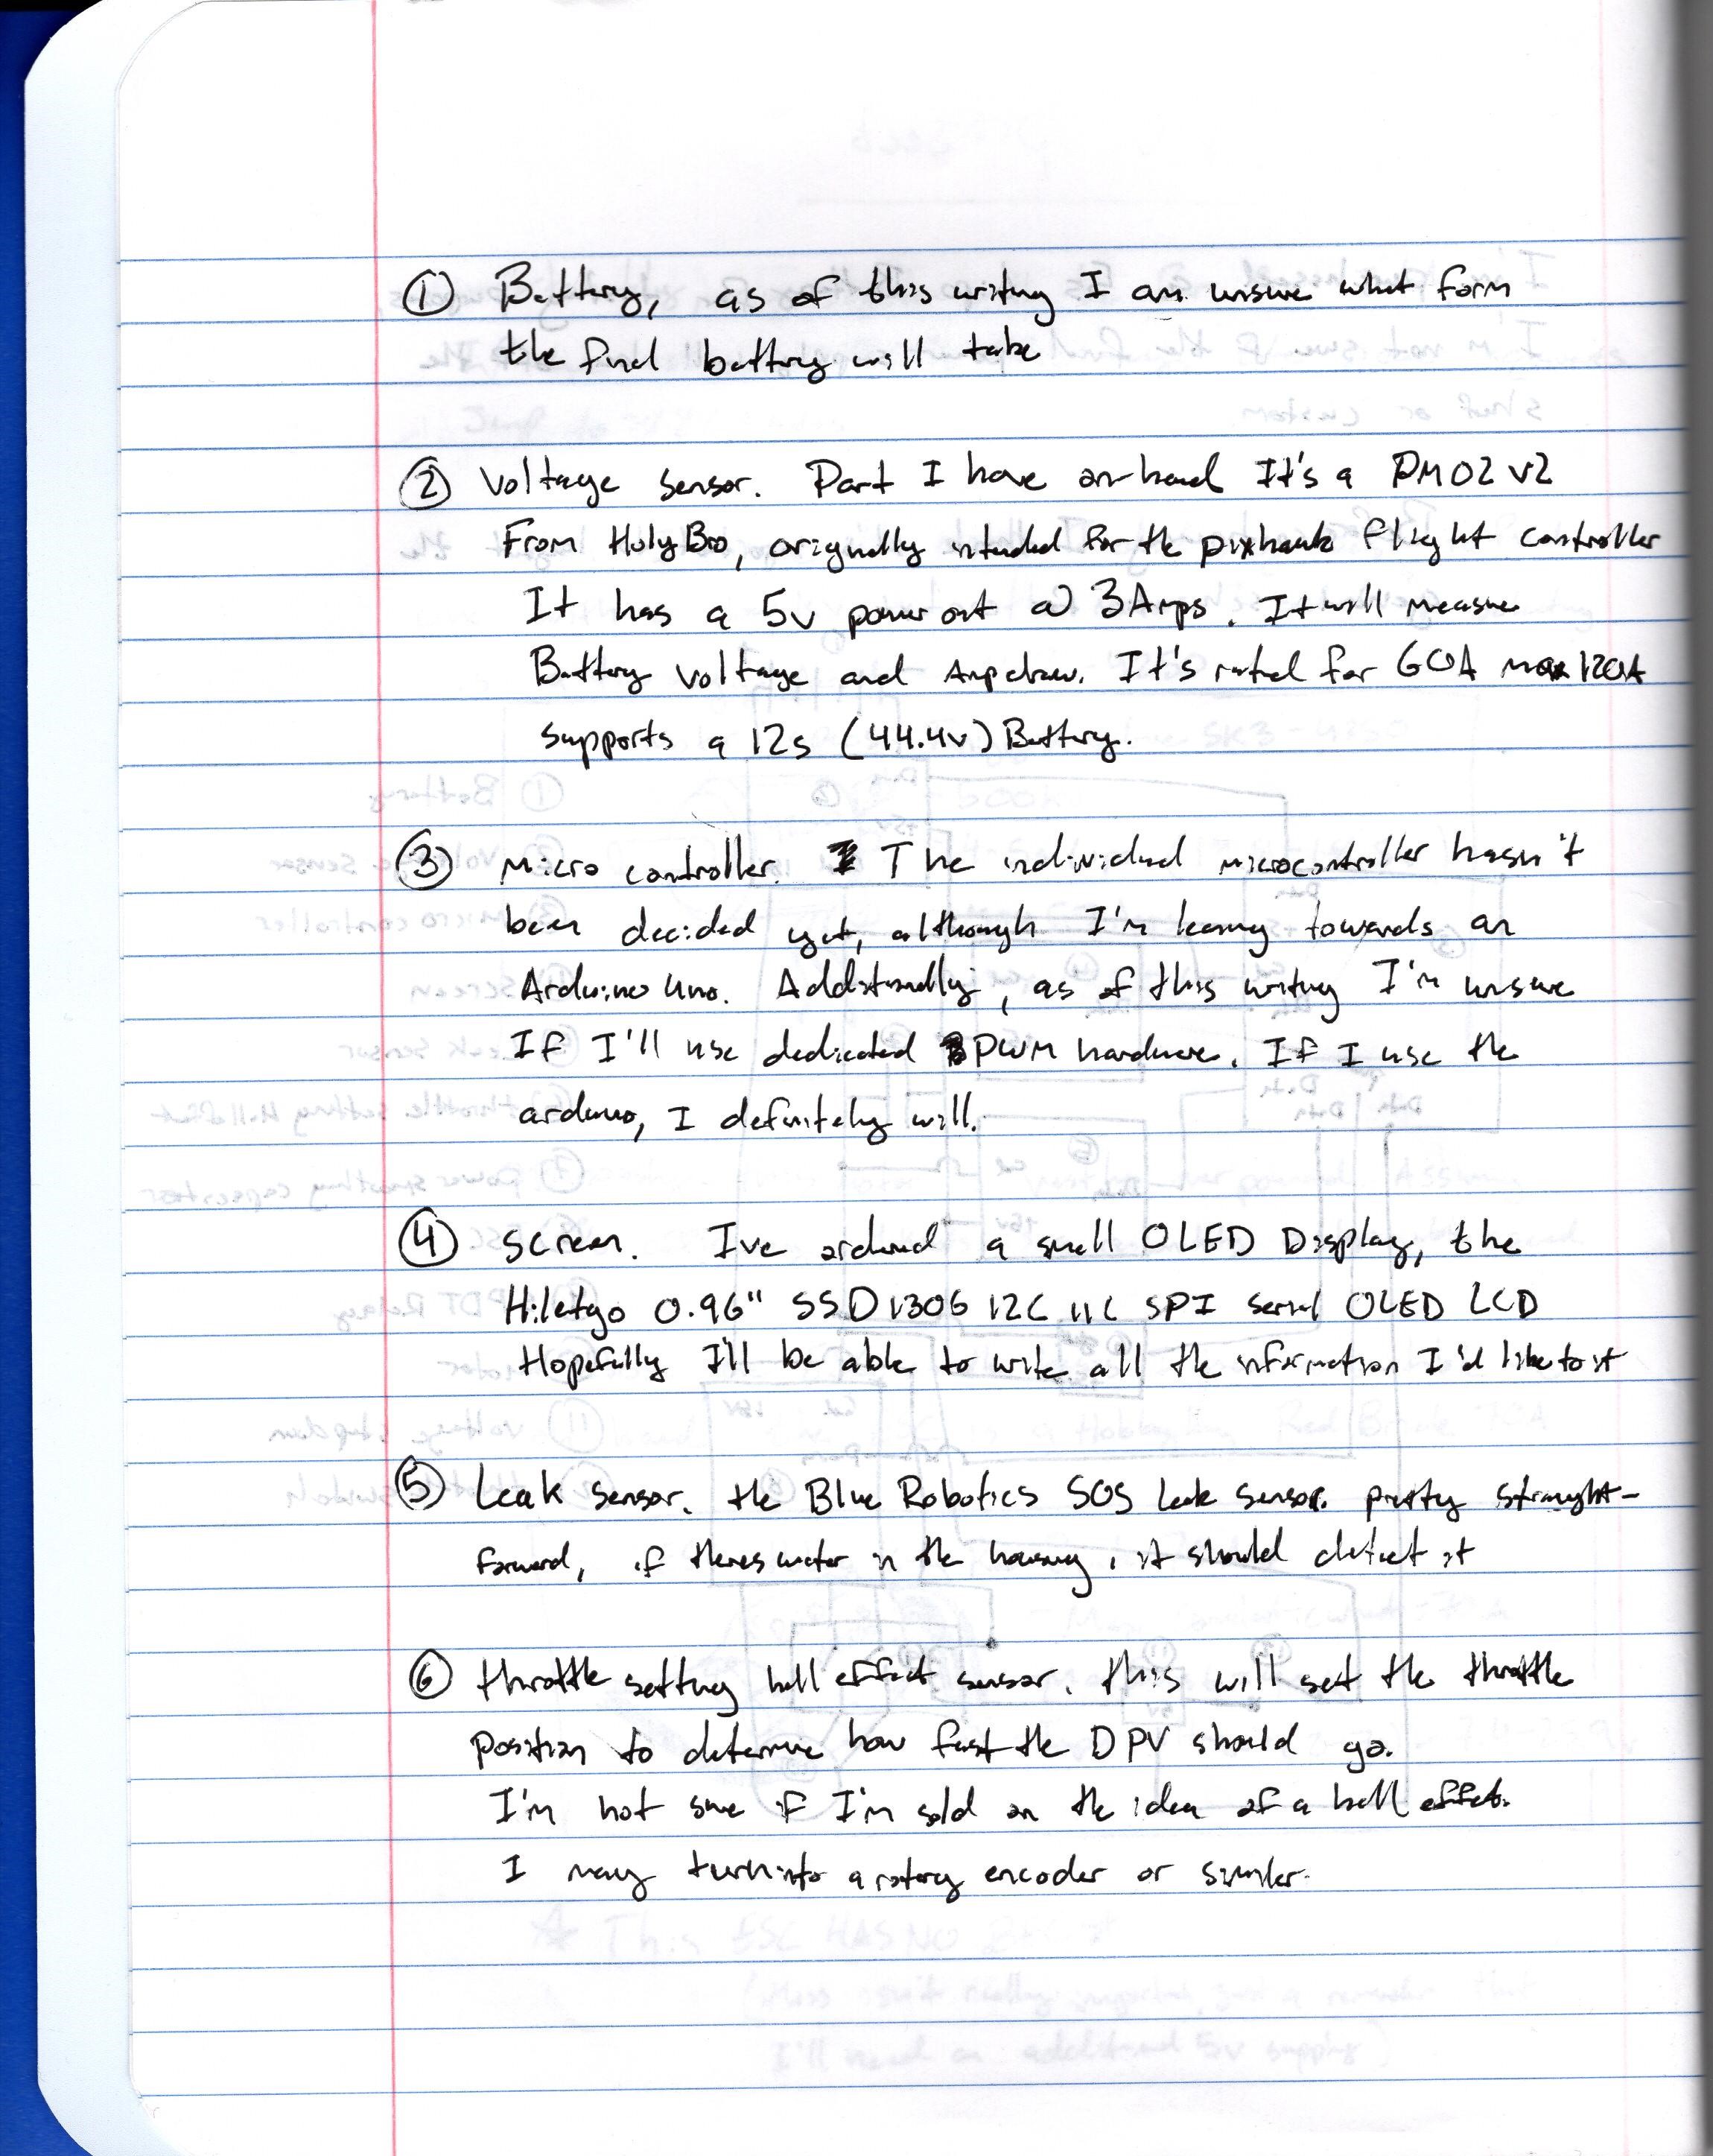 ① Battery, as of this writing I am unsure what form
the final battery will take
② Voltage sensor. Part I have on-hand It's a PM02 V2
From HolyBro, originally intended for the pixhawk flight controller
It has a 5v power out @ 3Amps. It will measure
Battery voltage and Amp draw. It's rated for 60A max 120A
supports a 12s (44.4v) Battery.
③ Micro controller. The individual microcontroller hasn't
been decided yet, although I'm leaning towards an
Arduino Uno. Additionally, as of this writing I'm unsure
If I'll use dedicated PWM hardware. If I use the
arduino, I definitely will.
④ Screen. I've ordered a small OLED Display, the
Hiletgo 0.96" SSD1306 I2C IIC SPI Serial OLED LCD
Hopefully I'll be able to write all the information I'd like to it
⑤ Leak sensor. the Blue Robotics SOS leak sensor. pretty straight-
forward, if theres water in the housing, it should detect it
⑥ throttle setting hall effect sensor. this will set the throttle
position to determine how fast the DPV should go.
I'm not sure if I'm sold on the idea of a hall effect.
I may turn into a rotary encoder or similar.